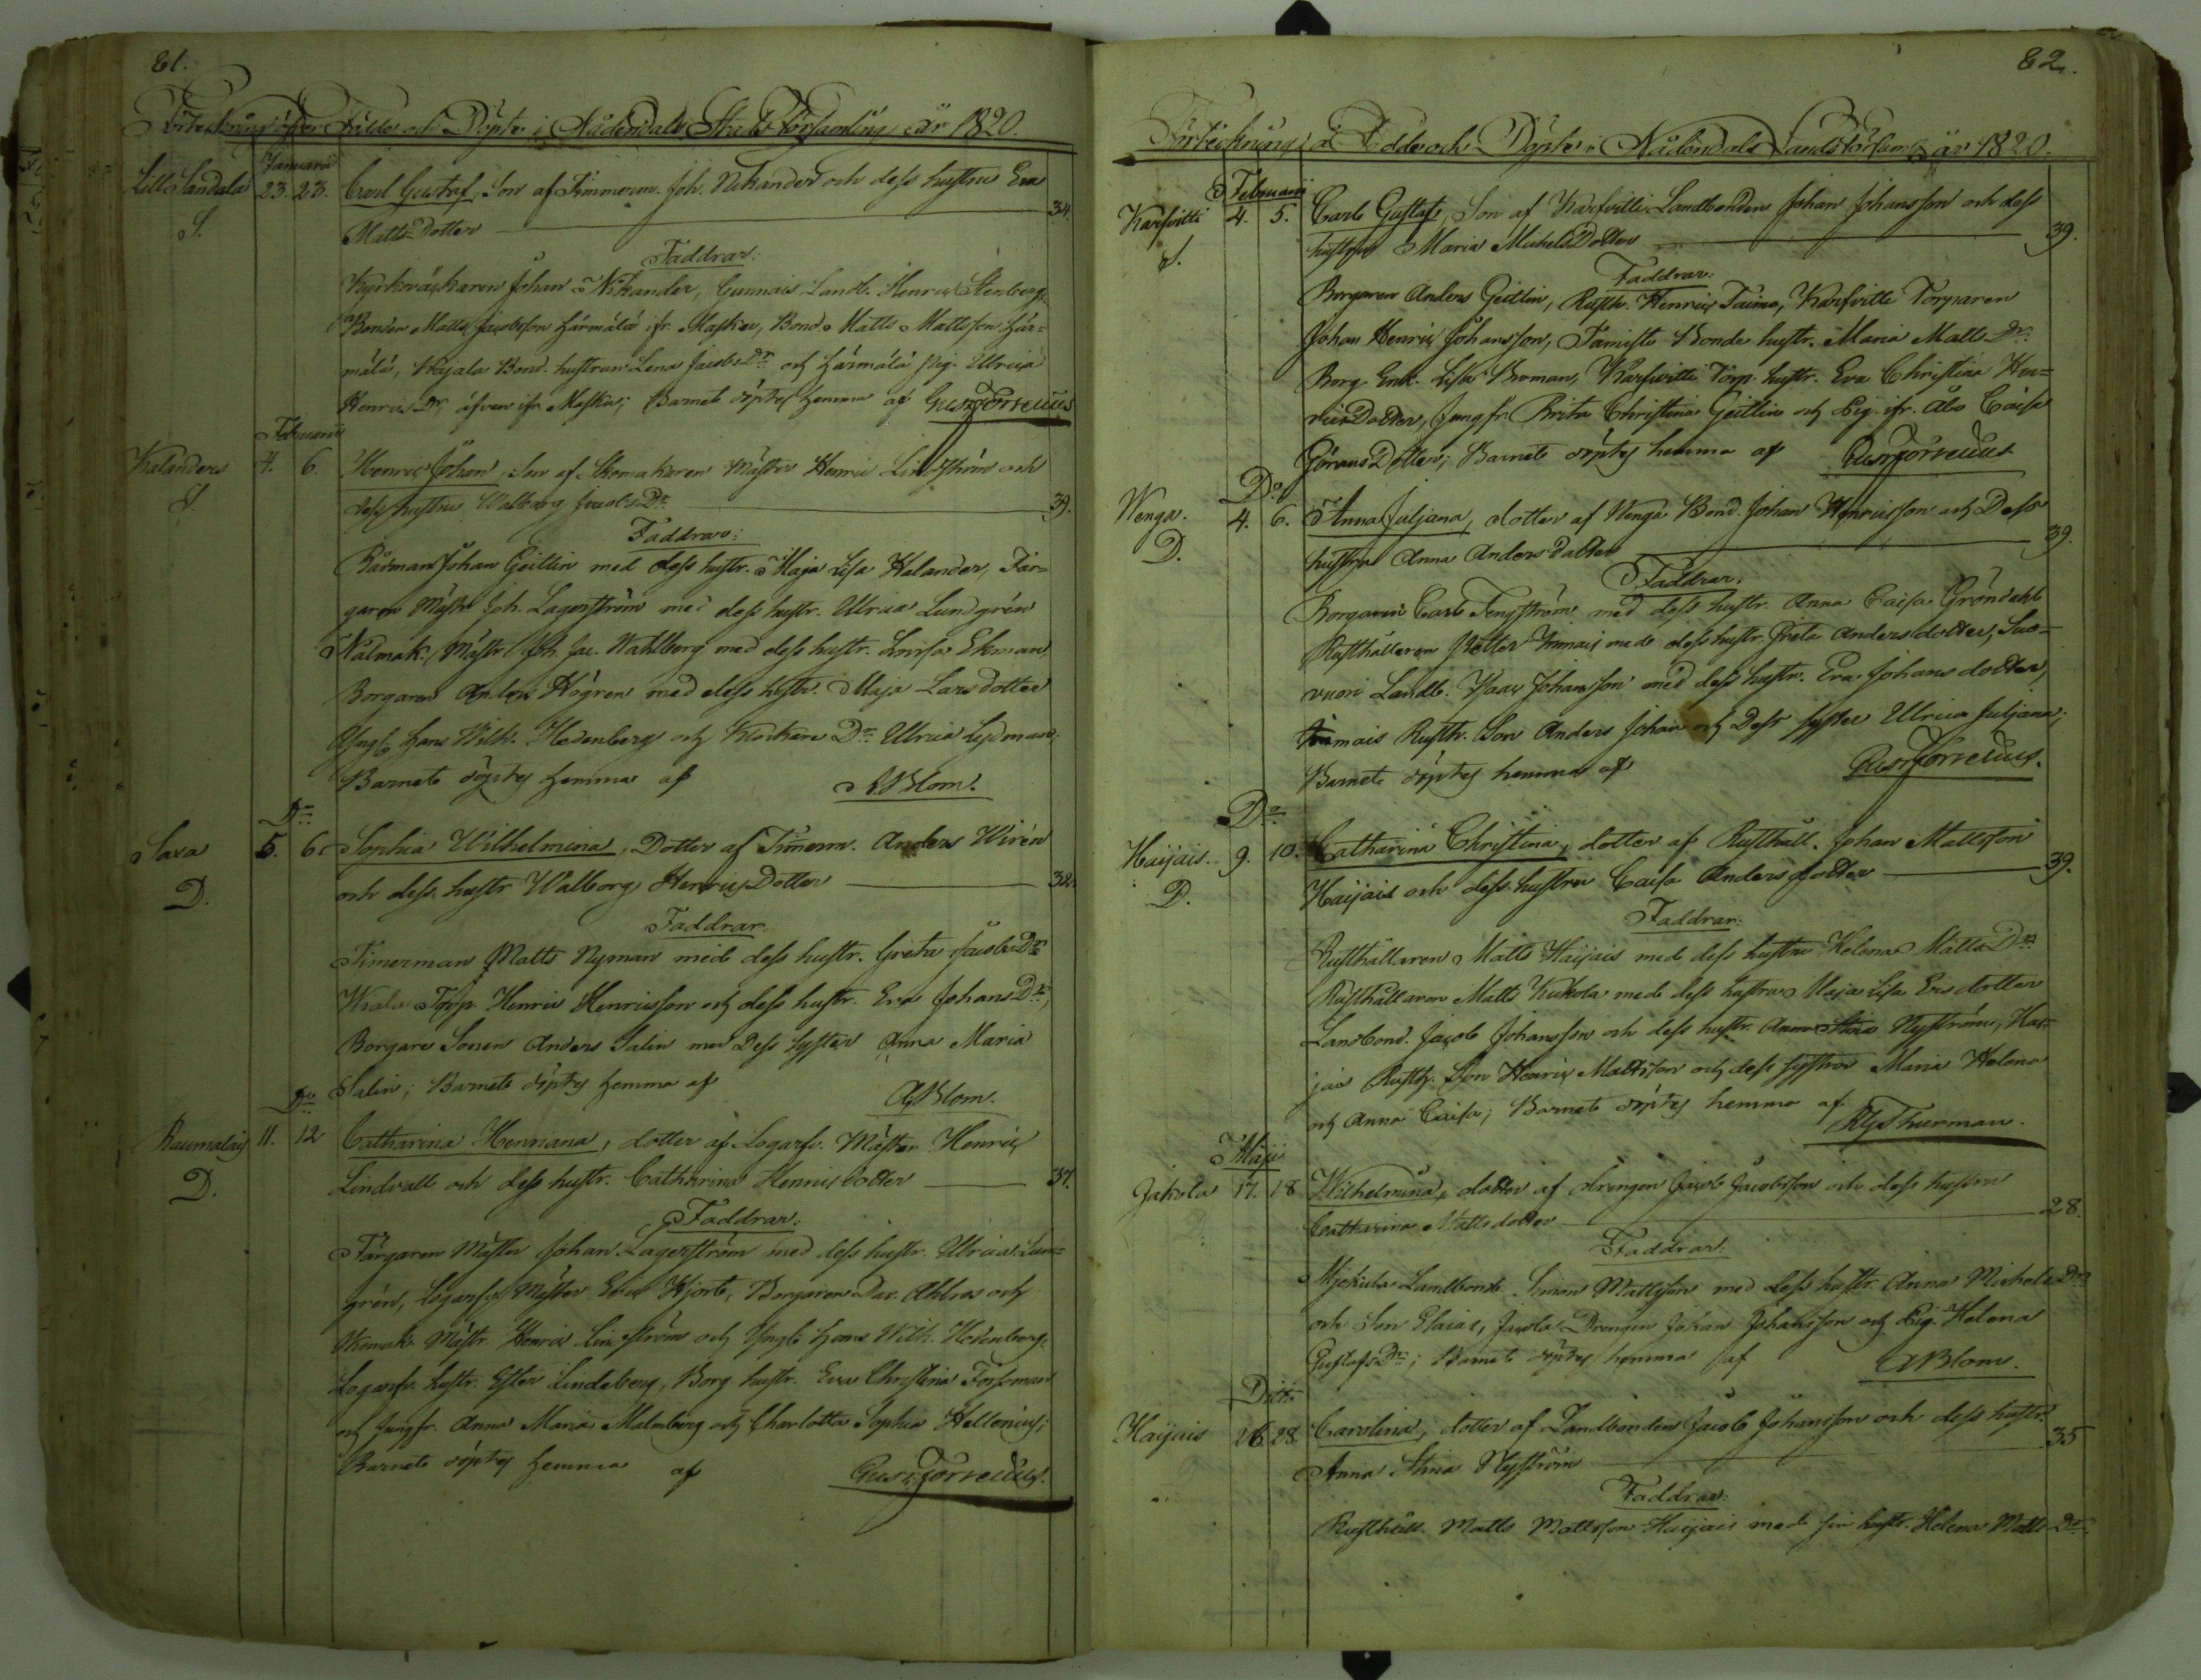 81.
Förteckning öfver Födde och Döpte i Nådendals Stads Församling år 1820.
Januarii
Lilla Sandala 23. 23. Carl Gustaf, Son af Timmerm. Joh. Nikander och dess hustru Eva
S. Matts Dotter 34.
Faddrar:
Kyrkoväktaren Johan Nikander, Gunnais Landb. Henric Stenberg,
Bonden Matts Jacobsson Härmälä ifr. Masku, Bond. Matts Mattsson Här=
mälä, Kajala Bond. hustrun Lena Jacobs Dr och Härmälä Pig. Ulrica
Henrics Dr, äfven ifr Masku; Barnet döptes hemma af Gust. Forselius
Februarii
Kalanders 4. 6. Henric Johan, Son af Skomakaren Mäster Henric Lindström och
S. dess hustru Walborg Jacobs Dr 39.
Faddrar:
Rådman Johan Geitlin med dess hustr. Maja Lisa Kalander, Fär=
garen Mästr Joh. Lagerström med dess hustr. Ulrica Lundgrén
Nålmak. Mästr Joh. Jac. Wahlberg med dess hustr. Lovisa Ekman,
Borgaren Anders Högren med dess hustr. Maja Larsdotter
Yngl. Hans Wilh. Hedenberg och Klockare Dr Ulrica Lydman;
Barnet döptes hemma af A. Blom.
Do
Saxa 5. 6. Sophia Wilhelmina, Dotter af Timerm. Anders Wirén
D. och dess hustr Walborg Henrics Dotter 32.
Faddrar.
Timerman Matts Nyman med dess hustr. Greta Jacobs Dr
Torp. Henric Henricsson och dess hustr. Eva Johans Dr,
Borgare Sonen Anders Salin med Dess Syster Anna Maria
Salin; Barnet döptes hemma af A. Blom.
Do
Raumalais 11. 12 Catharina Henriana, dotter af Logarfv. Mäster Henric
D. Lindvall och dess hustr. Catharina Henrics dotter 37.
Faddrar:
Färgaren Mäster Johan Lagerström med dess hustr. Ulrica Lun=
grén, Logarfv. Mäster Hjort, Borgaren Dav. Ahlros och
Skomak. Mästr. Henric Lindström och Yngl. Hans Wilh. Hedenberg,
Logarfv. hustr. Ester Lindeberg, Borg hustr. Eva Christina Forsman
och Jungfr. Anna Maria Malmberg och Charlotta Sophia Hellenius;
Barnet döptes hemma af Gust. Forselius.
82.
Förteckning å Födde och Döpte i Nådendals Landsförsaml. år 1820.
Februarii
Karfvitti 4. 5. Carl Gustaf, Son af Karfvitti Landbonden Johan Johansson och dess
S. hustru Maria Michels Dotter 39.
Faddrar:
Borgaren Anders Geitlin, Rusth. Henric Taimo, Karfvitti Torparen
Johan Henric Johansson, Tamisto Bonde hustr. Maria Matts Dr
Borg. Enk. Lisa Broman, Karfvitti Torp. hustr. Eva Christina Hen=
rics Dotter, Jungfr. Brita Christina Geitlin och Pig. ifr. Åbo Caisa
Görans Dotter; Barnet döptes hemma af Gust. Forselius
Do
Wenga. 4. 6. Anna Juljana, dotter af Wenga Bond. Johan Henricsson och Dess
D. hustru Anna Anders dotter 39.
Faddrar.
Borgaren Carl Tengström med dess hustr. Anna Caisa Gröndahl
Rusthållaren Petter Immais med dess hustr. Greta Andersdotter, Luo=
vuori Landb. Isaac Johansson med dess hustr. Eva Johansdotter,
Immais Rusth. Son Anders Johan och Dess Syster Ulrica Juljana;
Barnet döptes hemma af Gust. Forselius.
Do
Haijais. 9. 10. Catharina Christina, dotter af Rusthåll. Johan Mattsson
D. Haijais och dess hustru Caisa Anders dotter 39.
Faddrar:
Rusthållaren Matts Haijais med dess hustru Helena Matts Dr
Rusthållaren Matts Kukola med dess hustru Maja Lisa Ersdotter
Landbond. Jacob Johansson och dess hustr. Anna Stina Nyström, Hai=
jais Rusth. Son Henric Mattsson och dess systrar Maria Helena
och Anna Caisa; Barnet döptes hemma af Thurman.
Maji
Jakola 17. 18 Wilhelmina, dotter af drengen Jacob Jacobsson och dess hustru
Catharina Mattsdotter 28.
Faddrar:
Landbond. Simon Mattsson med dess hustr. Anna Michels Dr
och Son Esaias, Jacola Drengen Johan Johansson och Pig. Helena
Gustafs Dr; Barnet döptes hemma af A Blom.
Ditto
Haijais 26 28 Carolina, dotter af Landbonden Jacob Johansson och dess hustr.
Anna Stina Nyström 35
Faddrar:
Rusthåll. Matts Mattsson Haijais med sin hustr. Helena Matts Dr